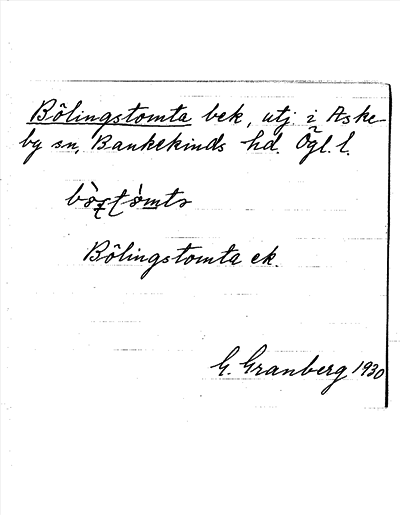 Bôlingstomta bek, utj. i Aske-
by sn, Bankekinds hd. Ögl. l.
Bôlingstomta ek.
G. Granberg 1930